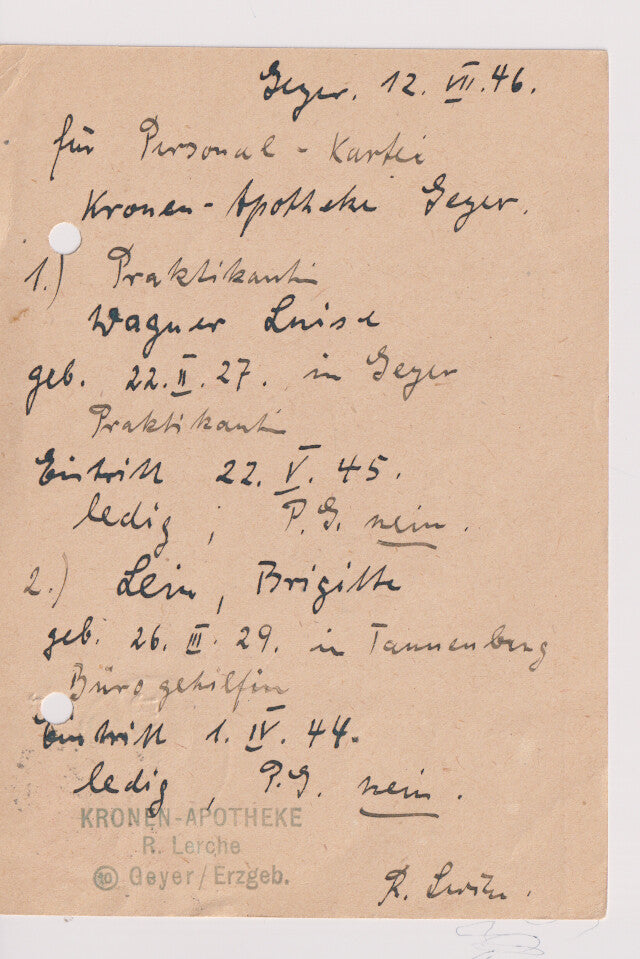 Geyer. 12. VII. 46.
für Personal-Kartei
Kronen-Apotheke Geyer.
1.) Praktikantin
Wagner Luise
geb. 22. II. 27. in Geyer
Praktikantin
Eintritt 22. V. 45.
ledig, P.G. nein.
2.) Lein, Brigitte
geb. 26. III. 29. in Tannenberg
Bürogehilfin
Eintritt 1. IV. 44.
ledig, P.G. nein.
KRONEN-APOTHEKE
R. Lerche
10 Geyer/Erzgeb.
R. Lerche.